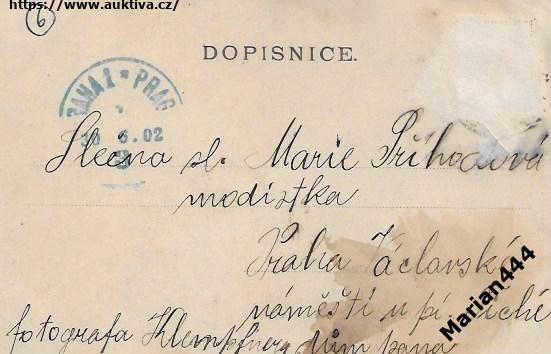 https://www.auktiva.cz/
6
DOPISNICE.
PRAHA 1 * PRAG
30 6.02
Slečna sl. Marie Příhodová
modistka
Praha Václavské
náměstí u pí
fotografa Klempfnera dům pana
Marian444